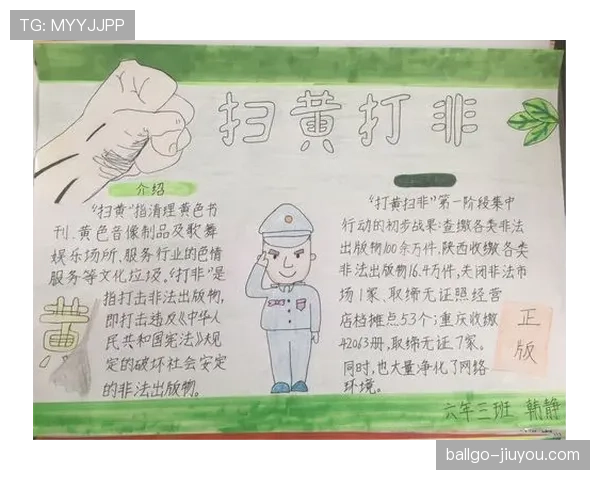 TG: MYYJJPP
扫黄打非
介绍
"扫黄"指清理黄色书
刊、黄色音像制品及歌舞
娱乐场所、服务行业的色情
服务等文化垃圾。"打非"是
指打击非法出版物,
即打击违反《中华人
民共和国宪法》规
定的破坏社会安定
的非法出版物。
黄
"打黄扫非"第一阶段集中
行动的初步战果:查缴各类非法
出版物100余万件,陕西收缴各类
非法出版物16.4万件,关闭非法市
场1家、取缔无证照经营
店档摊点53个;重庆收缴
42063册,取缔无证7家。
同时,也大量净化了网络
环境。
正
版
六年三班 韩静
ballgo-jiuyou.com